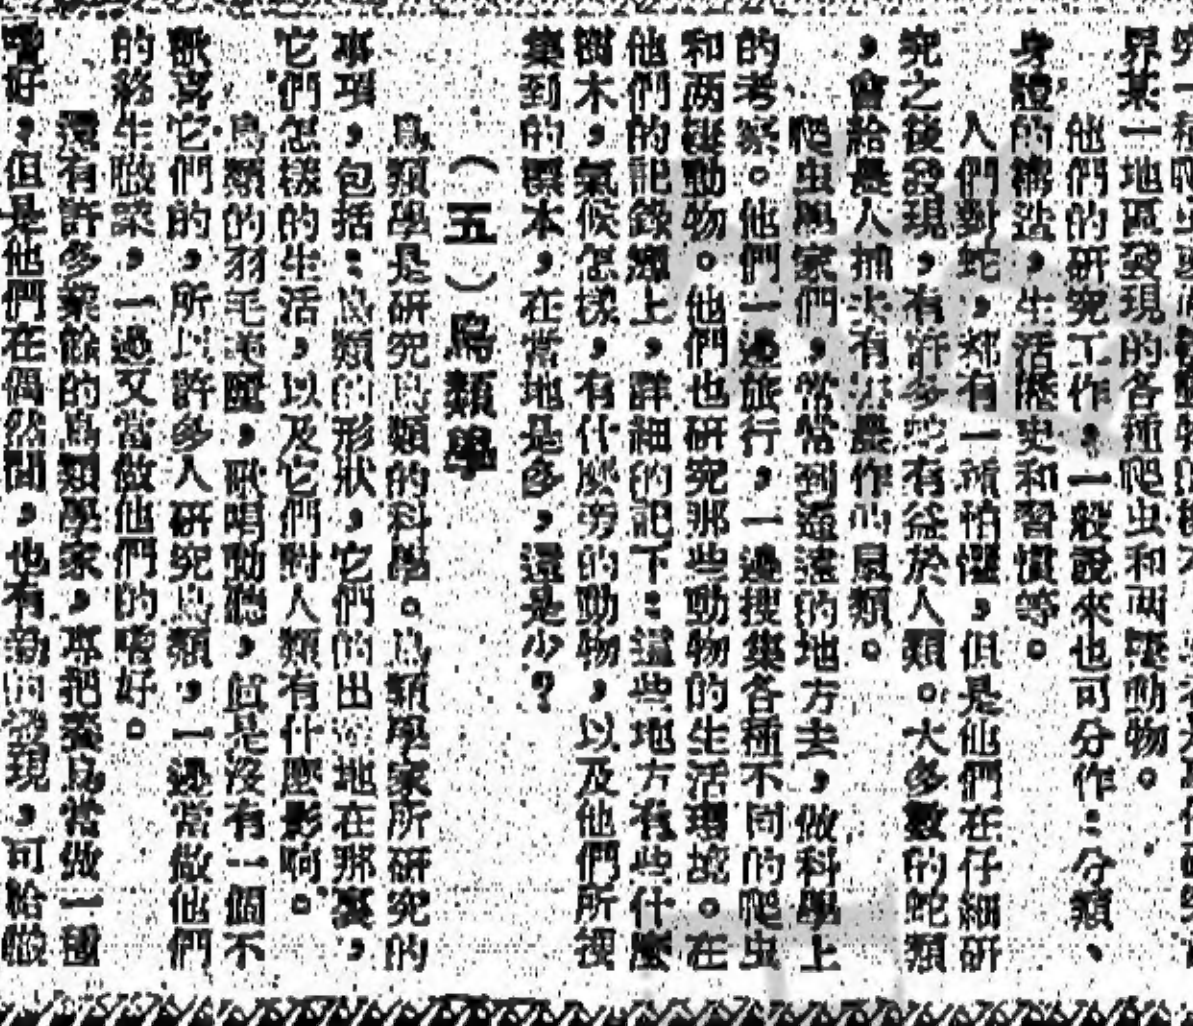 界某一地區發現的各種爬虫和兩棲動物。
他們的研究工作，一般說來也可分作：分類、
身體的構造，生活歷史和習慣等。
人們對蛇，都有一所怕懼，但是他們在仔細研
究之後發現，有許多蛇有益於人類。大多數的蛇類
，會給農人捕失有農作的鼠類。
爬虫學家們，常常到遙遠的地方去，做科學上
的考察。他們一邊旅行，一邊搜集各種不同的爬虫
和两棲動物。他們也研究那些動物的生活環境。在
他們的記錄上，詳細的記下：這些地方有些什麼
樹木，氣候怎樣，有什麼旁的動物，以及他們所搜
集到的標本，在當地是多，還是少？
（五）鳥類學
鳥類學是研究鳥類的科學。鳥類學家所研究的
事項，包括：鳥類的形狀，它們的出地在那裏，
它們怎樣的生活，以及它們對人類有什麼影响。
鳥類的羽毛美麗，歌唱動聽，眞是沒有一個不
歡喜它們的，所以許多人研究鳥類，一邊當做他們
的終生職業，一邊又當做他們的嗜好。
還有許多業餘的鳥類學家，專把養鳥當做一種
嗜好，但是他們在偶然間，也有新的發現，可給